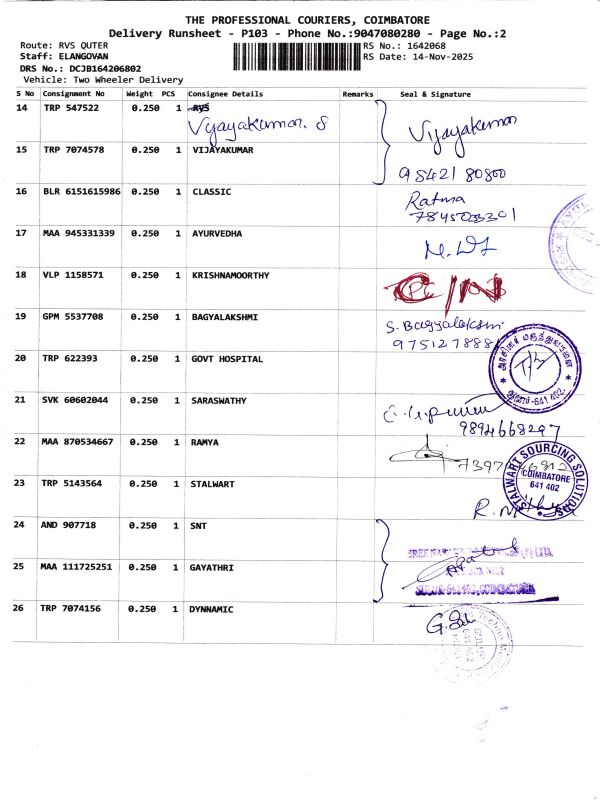 THE PROFESSIONAL COURIERS, COIMBATORE
Delivery Runsheet - P103 - Phone No.:9047080280 - Page No.:2
Route: RVS QUTER RS No.: 1642068
Staff: ELANGOVAN RS Date: 14-Nov-2025
DRS No.: DCJB164206802
Vehicle: Two Wheeler Delivery
S No Consignment No Weight PCS Consignee Details Remarks Seal & Signature
14 TRP 547522 0.250 1 RVS
Vijayakumar. S Vijayakumar
15 TRP 7074578 0.250 1 VIJAYAKUMAR
95421 80800
16 BLR 6151615986 0.250 1 CLASSIC Ratma
17 MAA 945331339 0.250 1 AYURVEDHA
18 VLP 1158571 0.250 1 KRISHNAMOORTHY
19 GPM 5537708 0.250 1 BAGYALAKSHMI S. Bagyalakshmi
975127888
20 TRP 622393 0.250 1 GOVT HOSPITAL அரசினர் மருத்துவமனை
சூலூர்-641 402.
21 SVK 60602044 0.250 1 SARASWATHY
9894668297
22 MAA 870534667 0.250 1 RAMYA
23 TRP 5143564 0.250 1 STALWART STALWART SOURCING SOLUTIONS
COIMBATORE
641 402
24 AND 907718 0.250 1 SNT
25 MAA 111725251 0.250 1 GAYATHRI
26 TRP 7074156 0.250 1 DYNNAMIC